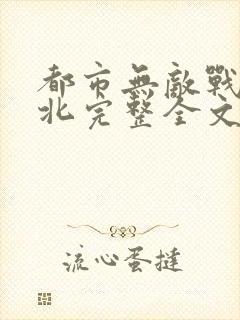 都市無敵戰
北完整全文
流心蛋撻